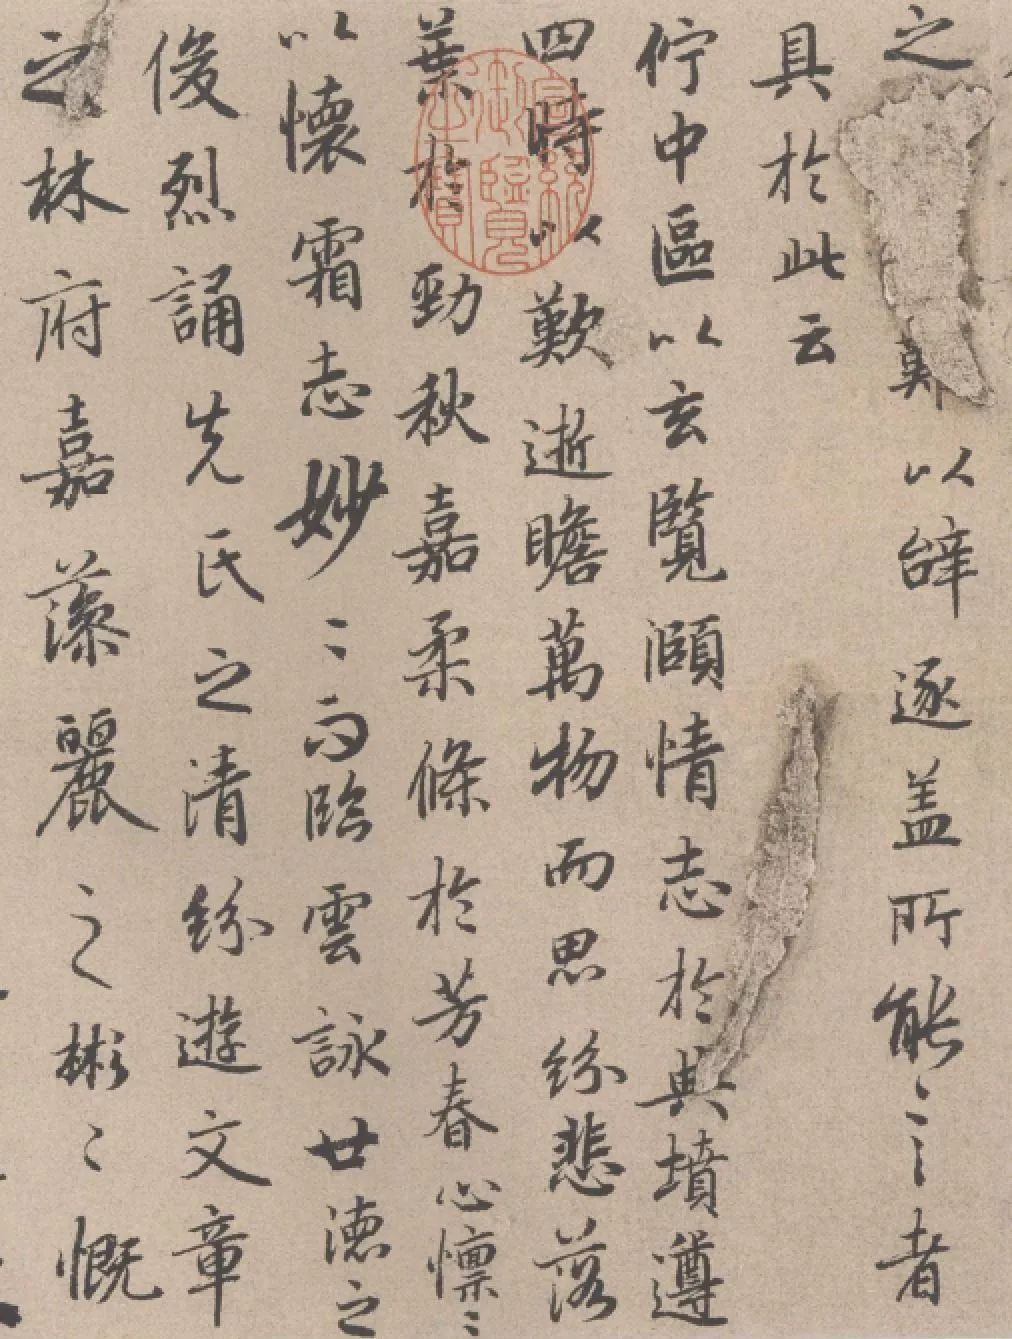 之難以辝逐盖所能言者
具於此云
佇中區以玄覽頤情志於典墳遵
四時以歎逝瞻萬物而思紛悲落
葉於勁秋嘉柔條於芳春心懍〻
以懷霜志妙〻而臨雲詠世德之
俊烈誦先氏之清紛遊文章
之林府嘉藻麗之彬〻慨
宣統御覽之寶